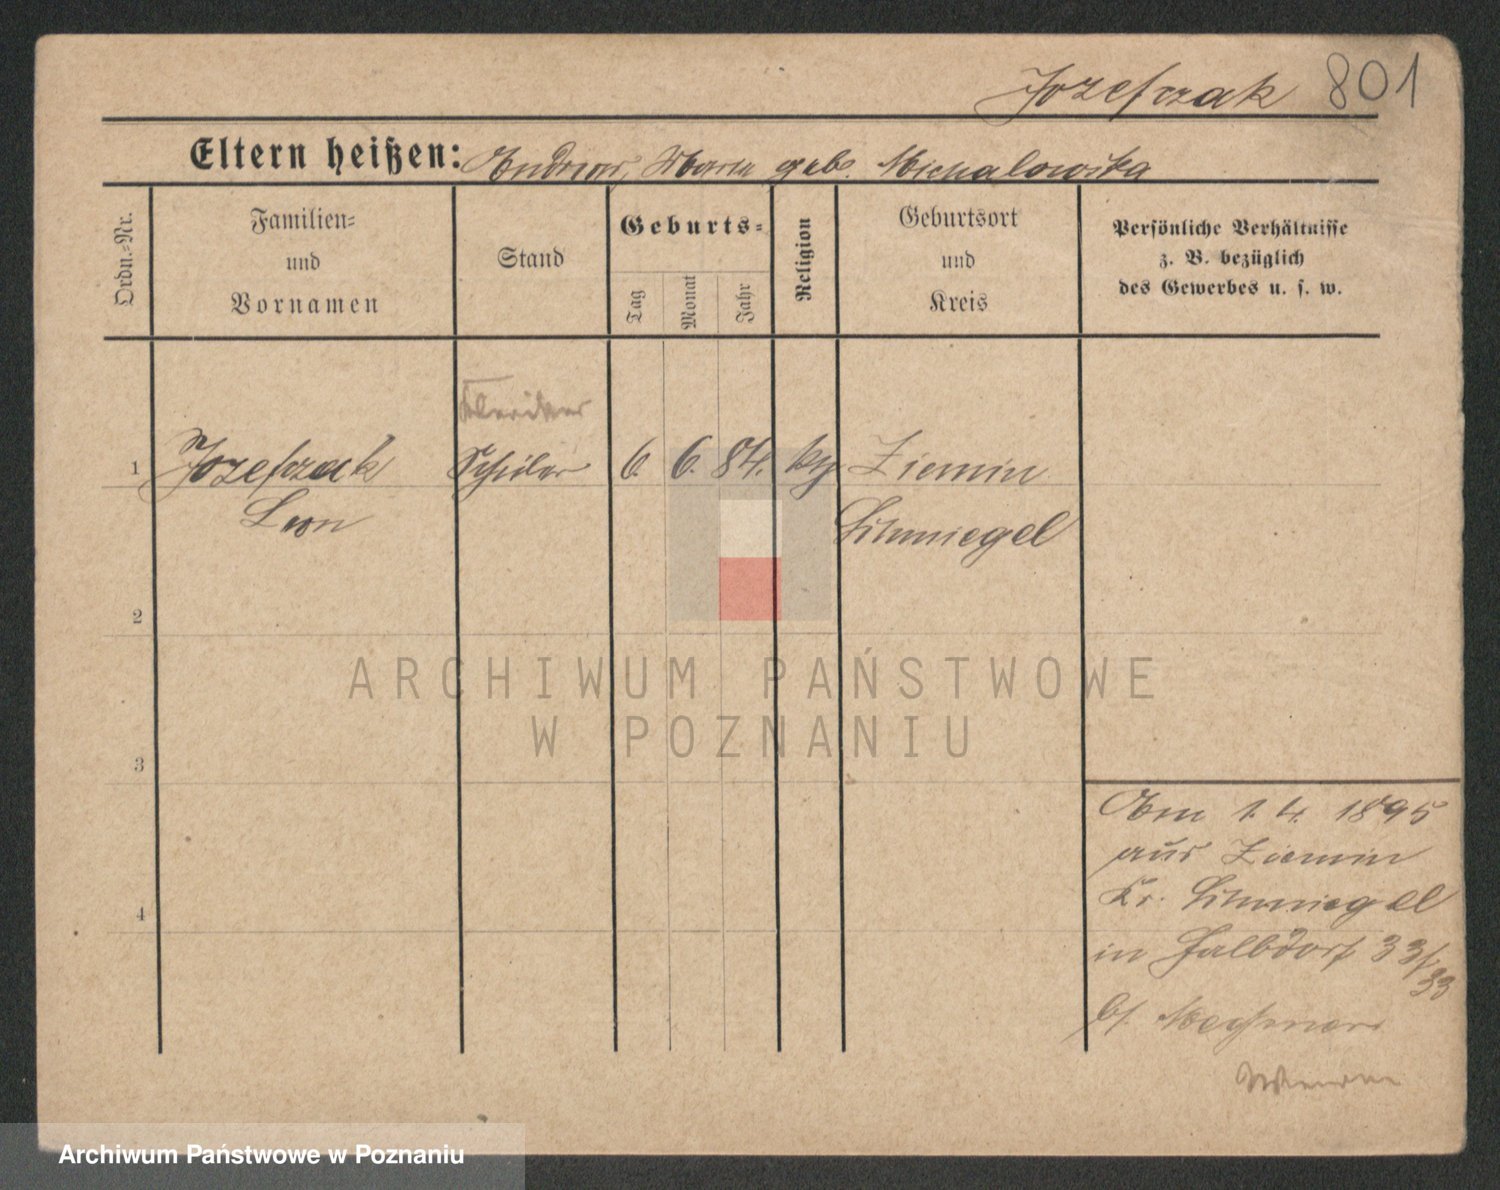 Jozefczak 801
Eltern heißen: Andreas, Maria geb. Michalowska
Ordn.-Nr.
Familien-
und
Vornamen
Stand
Geburts-
Tag
Monat
Jahr
Religion
Geburtsort
und
Kreis
Persönliche Verhältnisse
z. B. bezüglich
des Gewerbes u. s. w.
Kleriker
1 Jozefczak Schüler 6. 6. 84. kth Ziemin
Leon Schmiegel
2
3
4
Am 1. 4. 1895
aus Ziemin
Kr. Schmiegel
in Halbdorf 33/
33
b/
ARCHIWUM PAŃSTWOWE
W POZNANIU
Archiwum Państwowe w Poznaniu